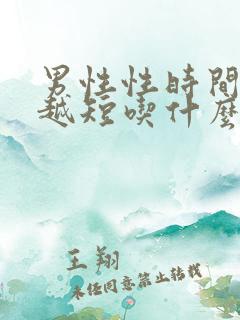 男性性時間
越短喫什麽
王翔
未经同意禁止转载